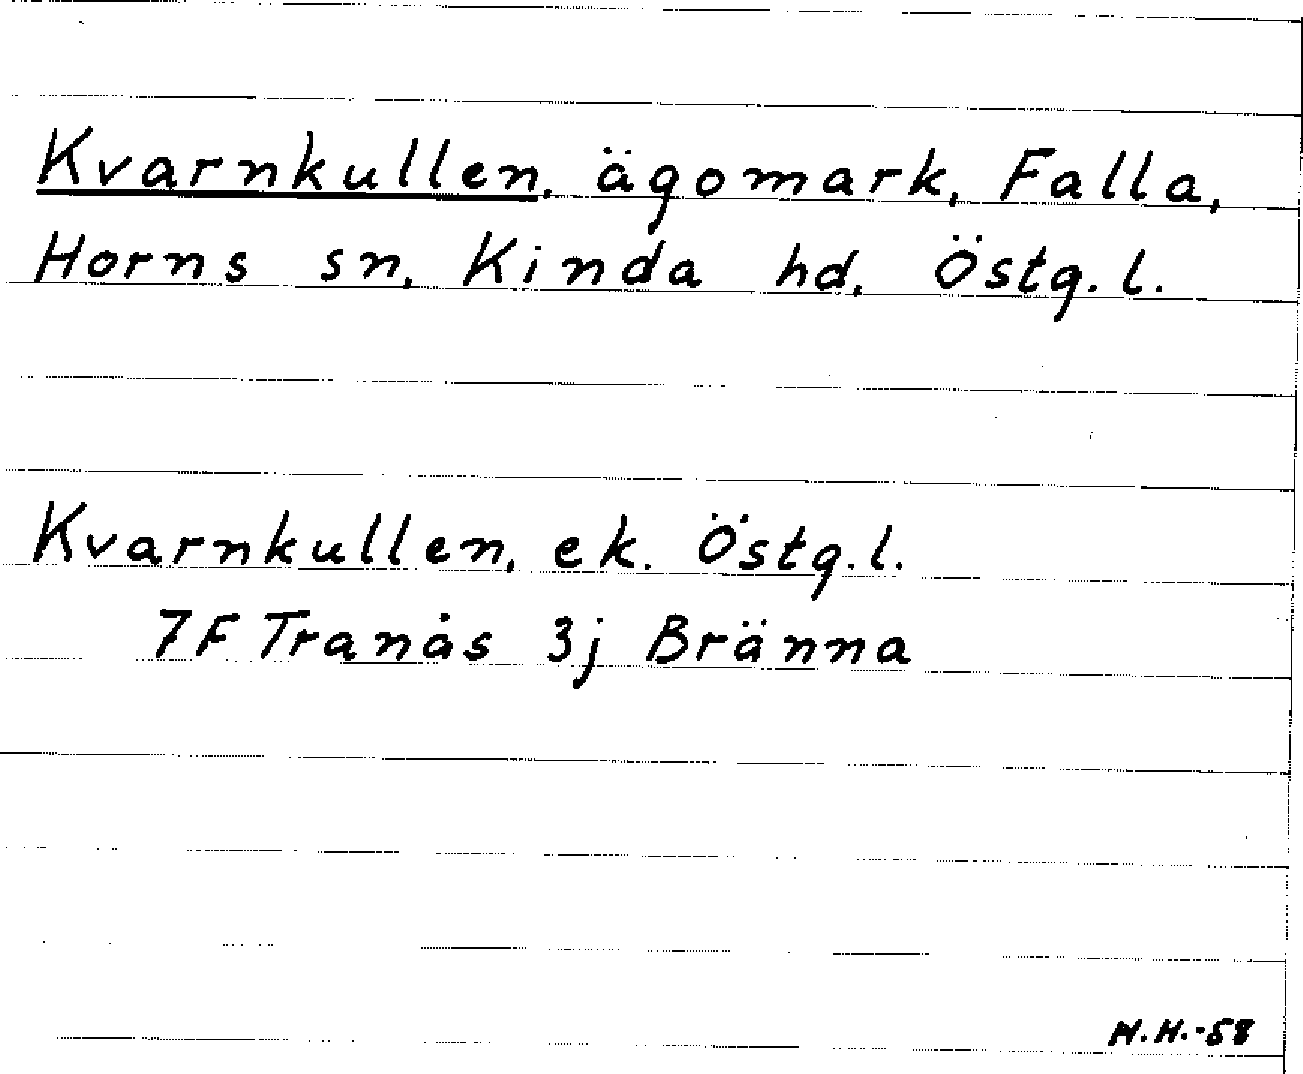 Kvarnkullen, ägomark, Falla,
Horns sn, Kinda hd, Östg. l.
Kvarnkullen, ek. Östg. l.
7F Tranås 3j Bränna
N.H.-58